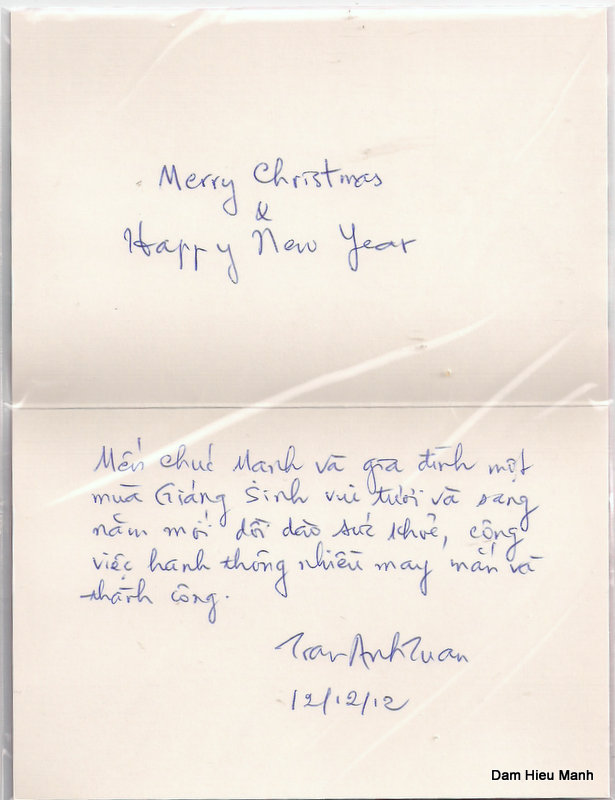 Merry Christmas
&
Happy New Year
Mến chúc Mạnh và gia đình một
mùa Giáng Sinh vui tươi và sang
năm mới dồi dào sức khoẻ, công
việc hanh thông nhiều may mắn và
thành công.
Tran Anh Tuan
12/12/12
Dam Hieu Manh